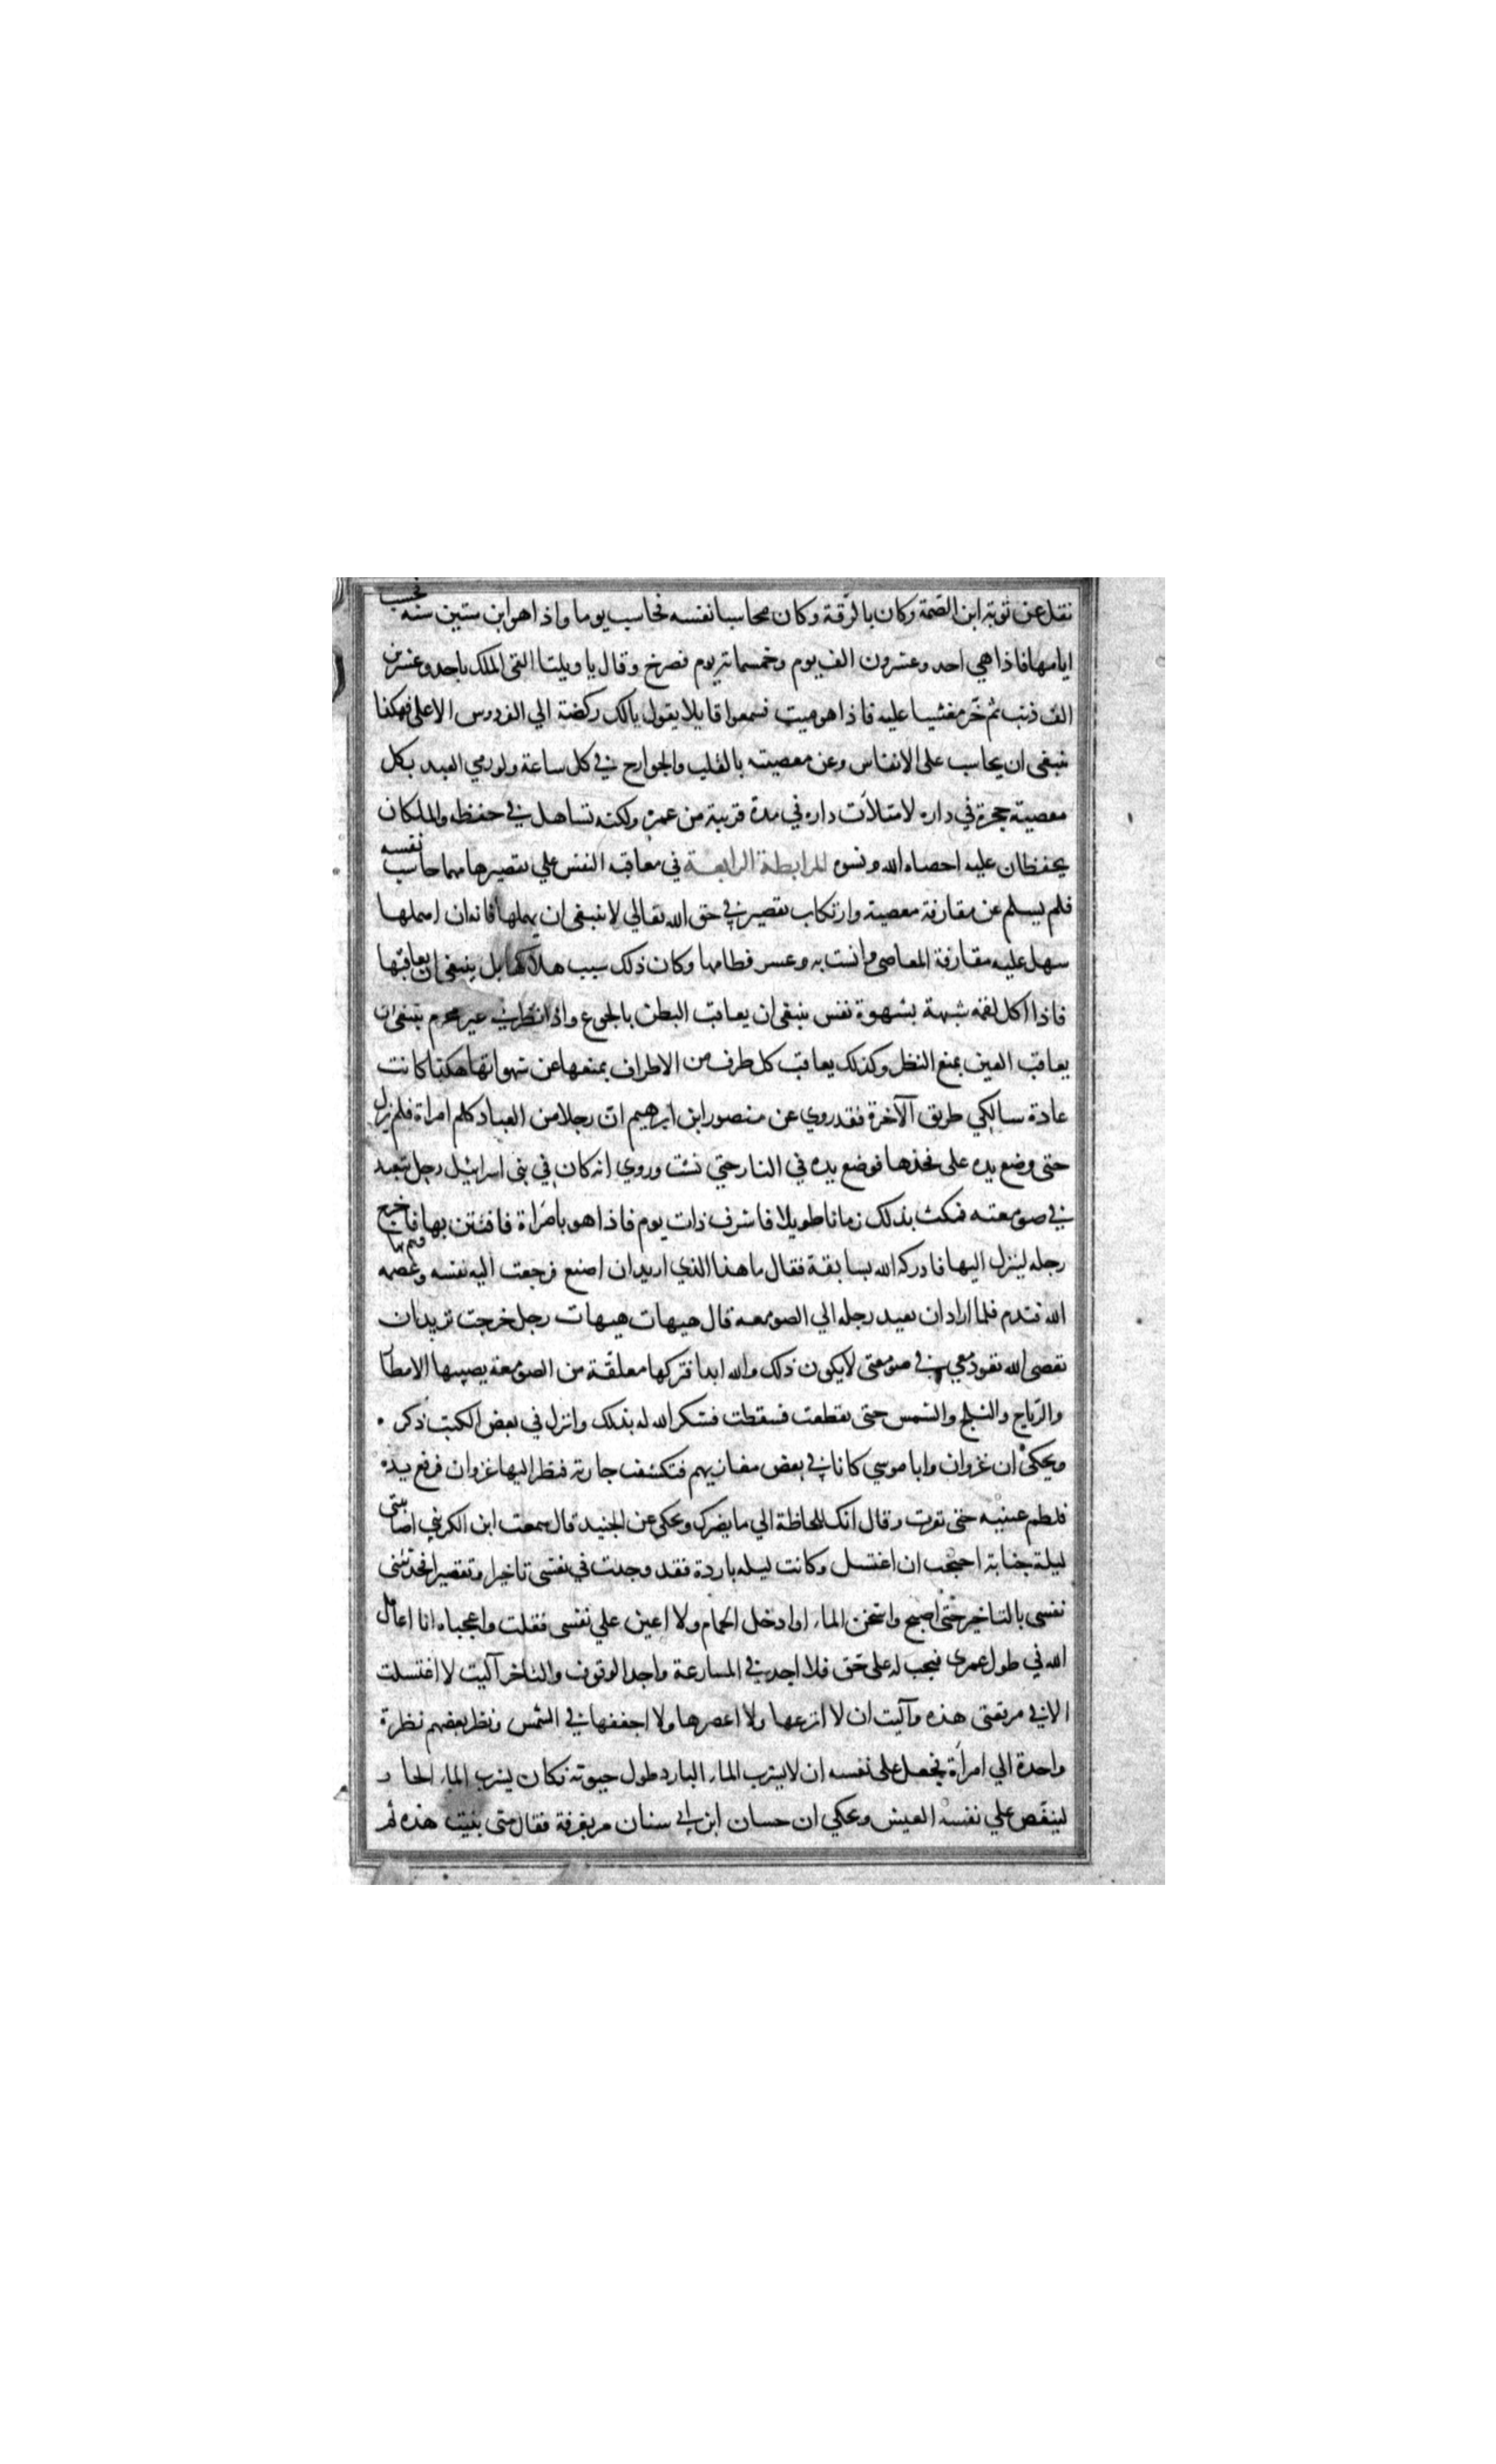 نقل عن توبة ابن الصمة وكان بالرقة وكان محاسبا نفسه فحاسب يوما واذا هو ابن ستين سنه فحسب
ايامها فاذا هي احد وعشرون الف يوم وخمسمائة يوم فصرخ وقال يا ويلتا القى الملك باحد وعشرين
الف ذنب ثم خر مغشيا عليه فاذا هو ميت فسمعوا قايلا يقول يالك ركضة الي الفردوس الاعلى فهكذا
ينبغي ان يحاسب على الانفاس وعن معصيته بالقلب والجوارح في كل ساعة ولو رمي العبد بكل
معصية حجرة في داره لامتلات داره في مدة قريبة من عمره ولكنه تساهل في حفظه والملكان
يحفظان عليه احصاه الله ونسوه المرابطة الرابعة في معاقبة النفس علي تقصيرها مهما حاسب نفسه
فلم يسلم عن مقارفة معصية وارتكاب تقصير في حق الله تعالي لا ينبغي ان يهملها فانه ان اهملها
سهل عليه مقارفة المعاصي وانست به وعسر فطامها وكان ذلك سبب هلاكها بل ينبغي ان يعاقبها
فاذا اكل لقمة شبهة بشهوة نفس ينبغي ان يعاقب البطن بالجوع واذا نظر الي غير محرم ينبغي ان
يعاقب العين بمنع النظر وكذلك يعاقب كل طرف من الاطراف بمنعها عن شهواتها هكذا كانت
عادة سالكي طريق الآخرة فقد روي عن منصور ابن ابرهيم ان رجلا من العباد كلم امراة فلم يزل
حتى وضع يده على فخذها فوضع يده في النار حتي نشت وروي انه كان في بني اسرائيل رجل يتعبد
في صومعته فمكث بذلك زمانا طويلا فاشرف ذات يوم فاذا هو بامراة فافتتن بها وهم بها فاخرج
رجله لينزل اليها فادركه الله بسابقة فقال ما هذا الذي اريد ان اصنع فرجعت اليه نفسه وعصمه
الله فندم فلما اراد ان يعيد رجله الي الصومعه قال هيهات هيهات رجل خرجت تريد ان
تعصي الله تعود معي في صومعتي لا يكون ذلك والله ابدا فتركها معلقة من الصومعة يصيبها الامطار
والرياح والثلج والشمس حتى تقطعت فسقطت فشكر الله له بذلك وانزل في بعض الكتب ذكره
ويحكى ان غزوان وابا موسي كانا في بعض مغازيهم فتكشفت جارية فنظر اليها غزوان فرفع يده
فلطم عينيه حتى نفرت وقال انك للحاظة الي ما يضرك ويحكى عن الجنيد قال سمعت ابن الكريبي اصابتني
ليلة جنابة احتجت ان اغتسل وكانت ليله باردة فقد وجدت في نفسي تاخيرا وتقصيرا فحدثتني
نفسي بالتاخير حتى اصبح واسخن الماء او ادخل الحمام ولا اعين علي نفسي فقلت واعجباه انا اعامل
الله في طول عمري فيجب له على حق فلا اجد في المسارعة واجد الوقوف والتاخر آليت لا اغتسلت
الا في مرقعتي هذه وآليت ان لا انزعها ولا اعصرها ولا اجففها في الشمس ونظر بعضهم نظرة
واحدة الي امراة فجعل على نفسه ان لا يشرب الماء البارد طول حيوته فكان يشرب الماء الحار
لينغص علي نفسه العيش ويحكى ان حسان ابن ابي سنان مر بغرفة فقال متى بنيت هذه ثم